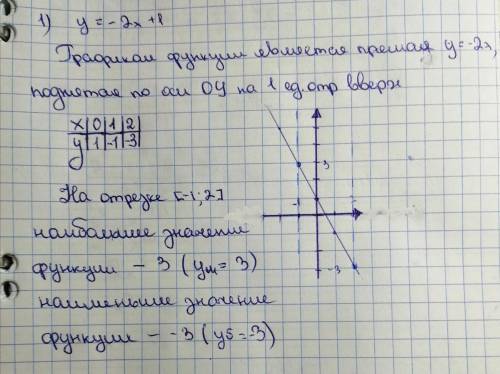 1) y = -2x +1
Графикам функции является прямая y = -2x,
поднятая по оси OY на 1 ед. отр вверх
x | 0 | 1 | 2
y | 1 | -1 | -3
3
-1
-3
На отрезке [-1; 2]
наибольшее значение
функции - 3 (yм = 3)
наименьшее значение
функции - -3 (y5 = -3)